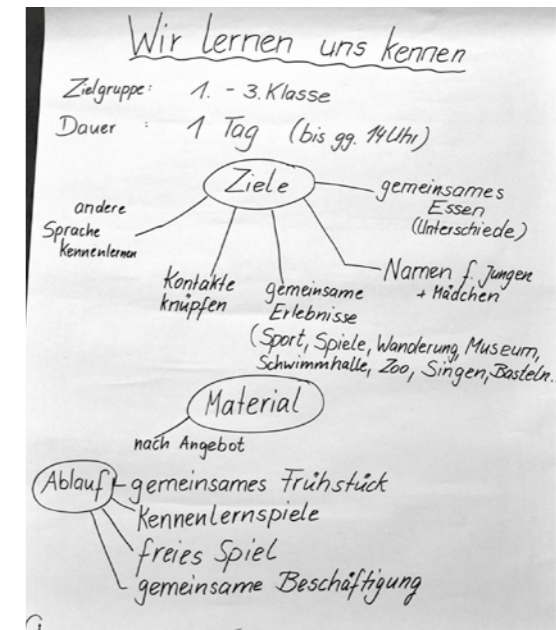 Wir lernen uns kennen
Zielgruppe: 1. - 3. Klasse
Dauer : 1 Tag (bis gg. 14 Uhr)
Ziele
gemeinsames
Essen
(Unterschiede)
andere
Sprache
Kennenlernen
Kontakte
knüpfen
gemeinsame
Erlebnisse
(Sport, Spiele, Wanderung, Museum,
Schwimmhalle, Zoo, Singen, Basteln...
Namen f. Jungen
+ Mädchen
Material
nach Angebot
Ablauf
gemeinsames Frühstück
Kennenlernspiele
freies Spiel
gemeinsame Beschäftigung